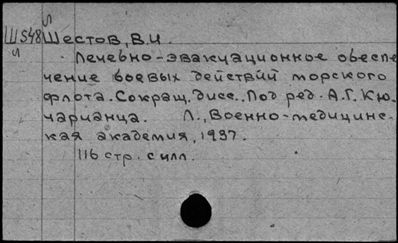 Ш548 Шестов, В.И.
Лечебно-эвакуационное обеспе
чение боевых действий морского
флота. Сокращ. дисс., Под ред. А.Г. Кю-
чарианца. Л., Военно-медицинс-
кая академия, 1937.
116 стр. с илл.